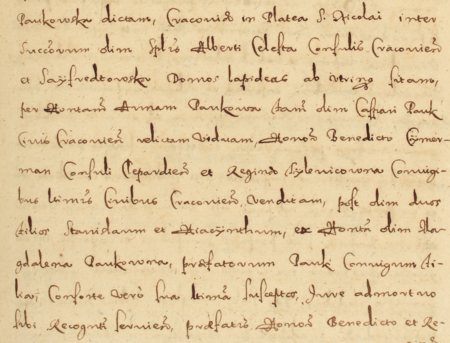 Paukowska dictam, Cracoviæ in Platea S. Nicolai inter
Succorum olim Splis Alberti Celesta Consulis Cracovien̄
et Sayfredtowskor̄ Domos lapideas ab utrinq sitam,
per Hontam Annam Paukowa fam̄ olim Caspari Pauk
Civis Cracovien̄ relictam Viduam, Honor̄ Benedicto Cymer-
man Consuli Clepardien̄ et Reginæ Sylenicowna Coniugi-
bus ltimis Civibus Cracovien̄ Venditam, post olim duos
filios Stanislaum et Hiacynthum, ex Honta olim Ma-
gdalena Paukowna, præfatorum Pauk Coniugum fi-
lia, Consorte vero sua ltima susceptos, Jure admortuo
sibi Recognit servien̄, præfatis Honor̄ Benedicto et Re-